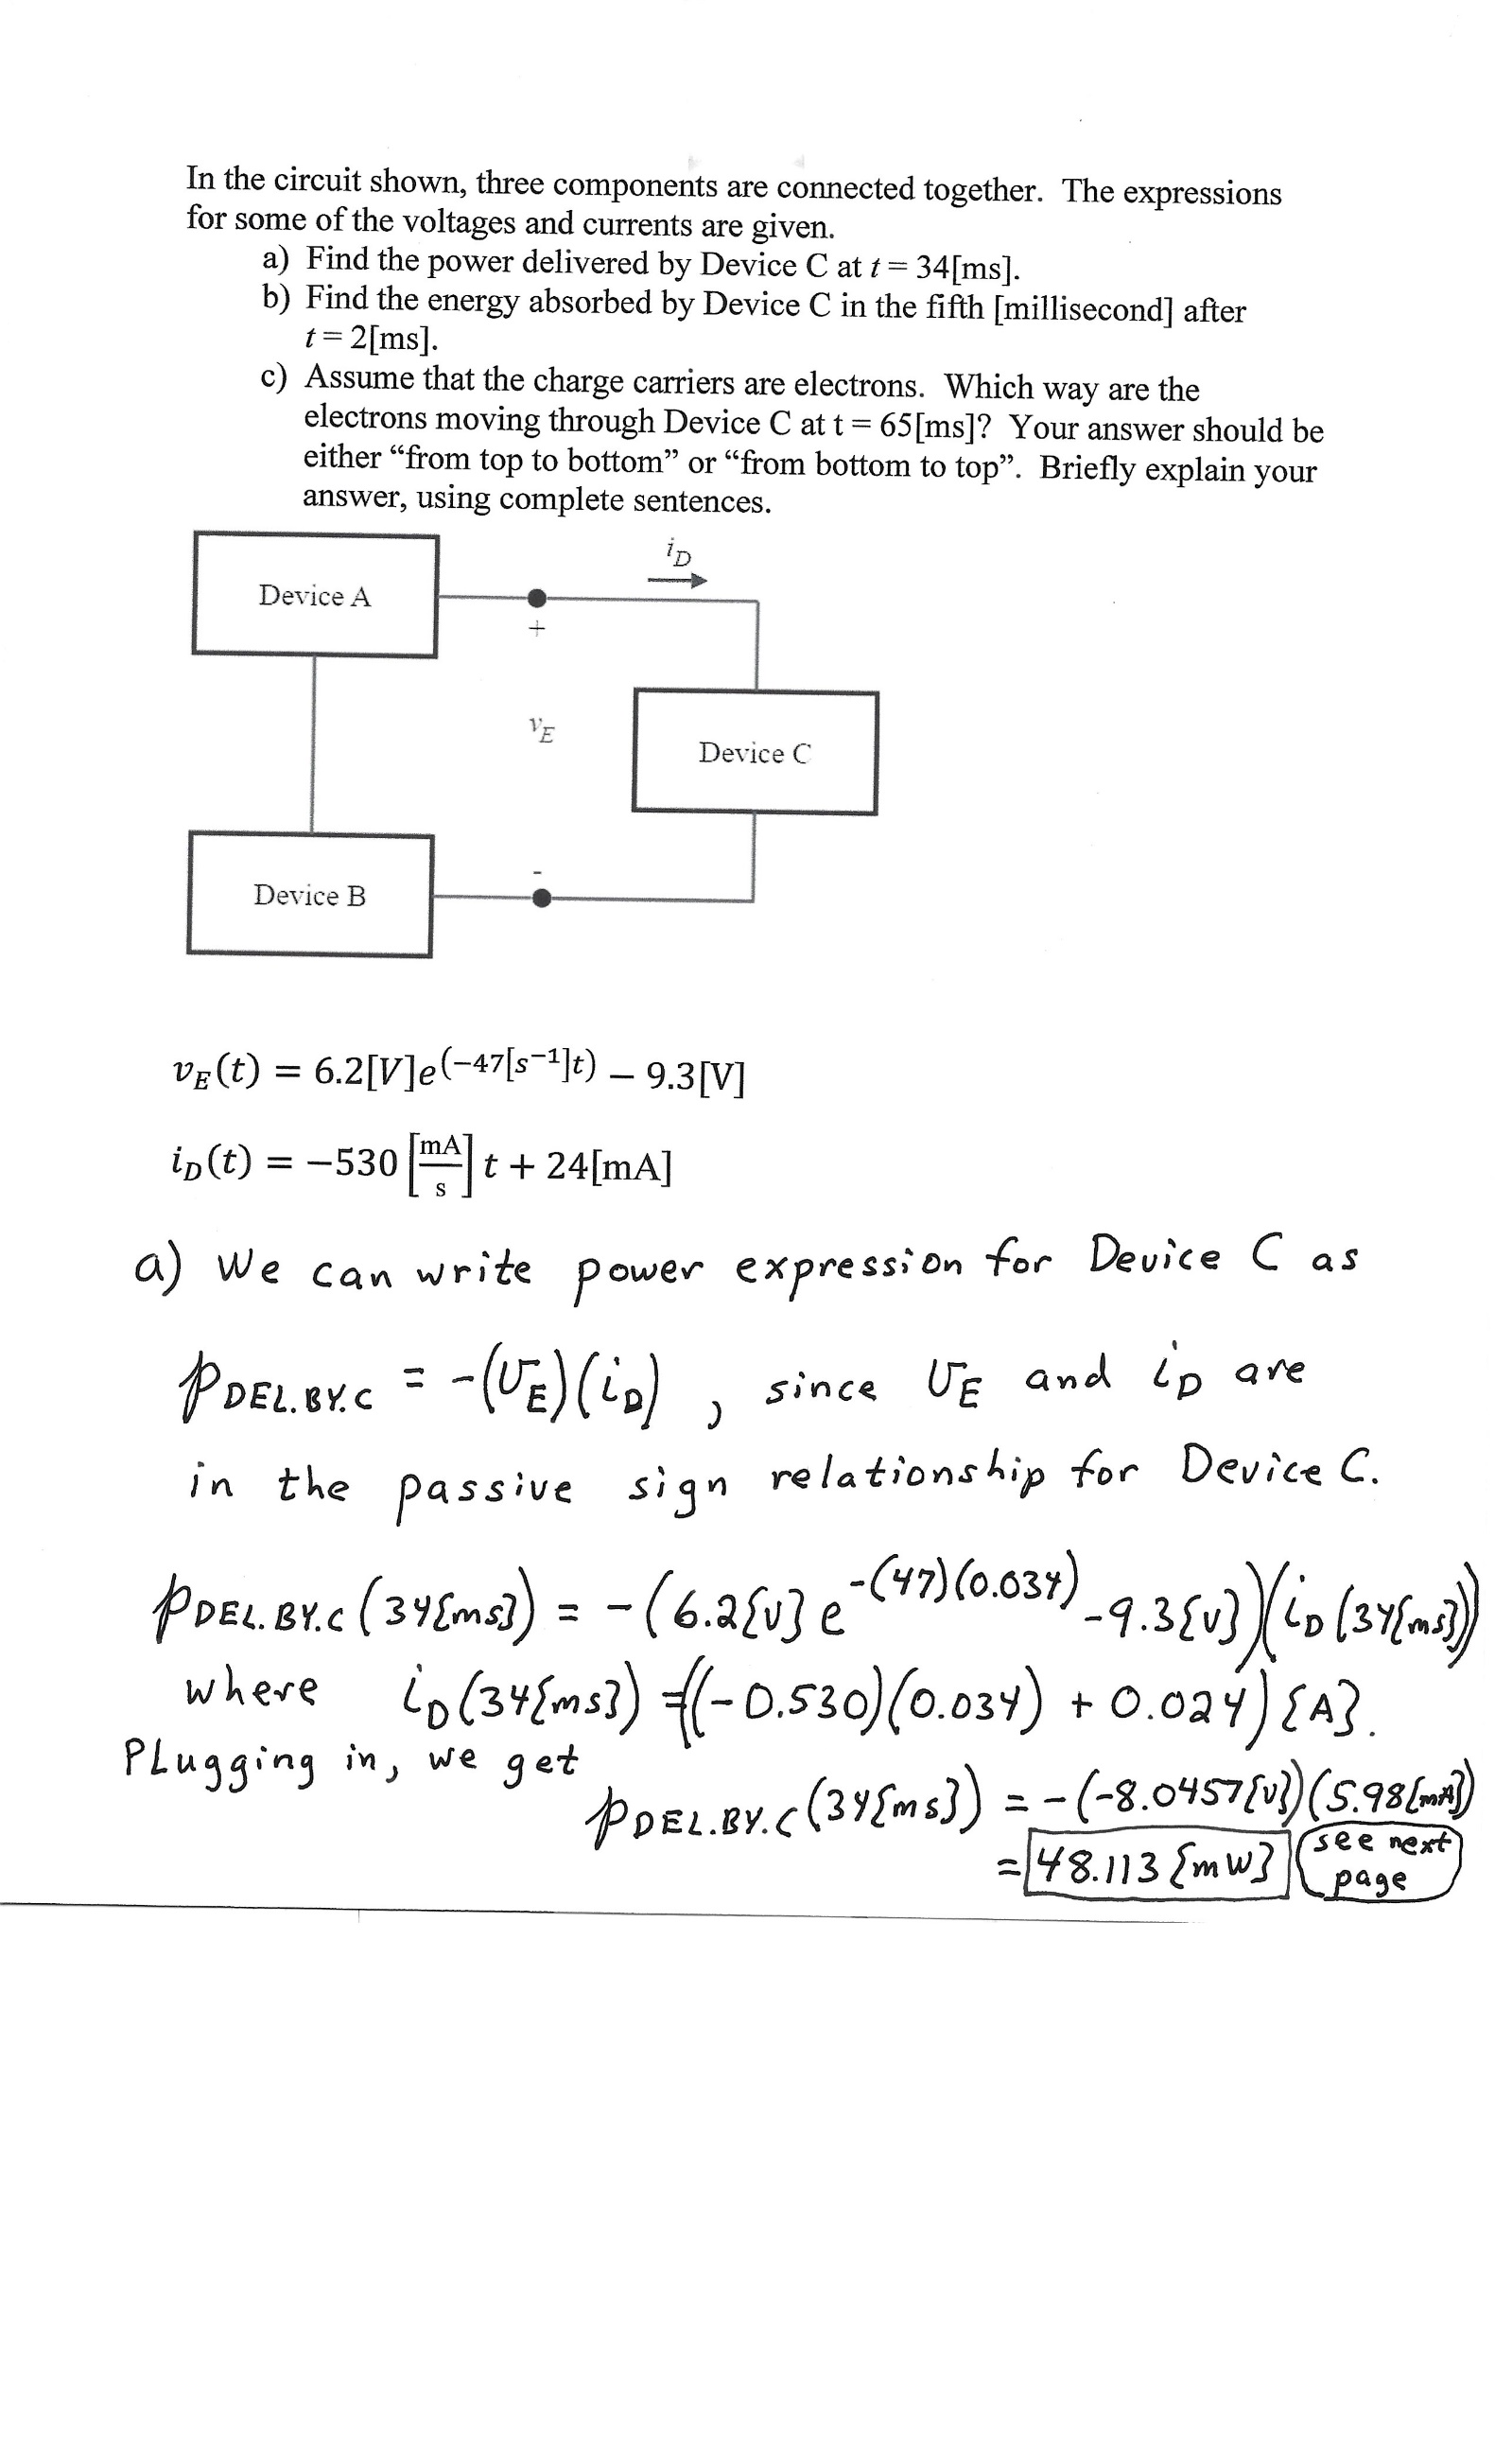 In the circuit shown, three components are connected together. The expressions
for some of the voltages and currents are given.
a) Find the power delivered by Device C at t = 34[ms].
b) Find the energy absorbed by Device C in the fifth [millisecond] after
t = 2[ms].
c) Assume that the charge carriers are electrons. Which way are the
electrons moving through Device C at t = 65[ms]? Your answer should be
either “from top to bottom” or “from bottom to top”. Briefly explain your
answer, using complete sentences.
i_D
Device A
+
v_E
Device C
-
Device B
v_E(t) = 6.2[V]e^(−47[s^−1]t) − 9.3[V]
i_D(t) = −530 [mA/s] t + 24[mA]
a) We can write power expression for Device C as
p_DEL.BY.C = -(v_E)(i_D) , since v_E and i_D are
in the passive sign relationship for Device C.
p_DEL.BY.C (34[ms]) = -(6.2[V] e^-(47)(0.034) -9.3[V])(i_D (34[ms]))
where i_D(34[ms]) =((-0.530)(0.034) + 0.024) [A].
PLugging in, we get
p_DEL.BY.C (34[ms]) = -(-8.0457[V])(5.98[mA])
= 48.113 [mW] see next
page